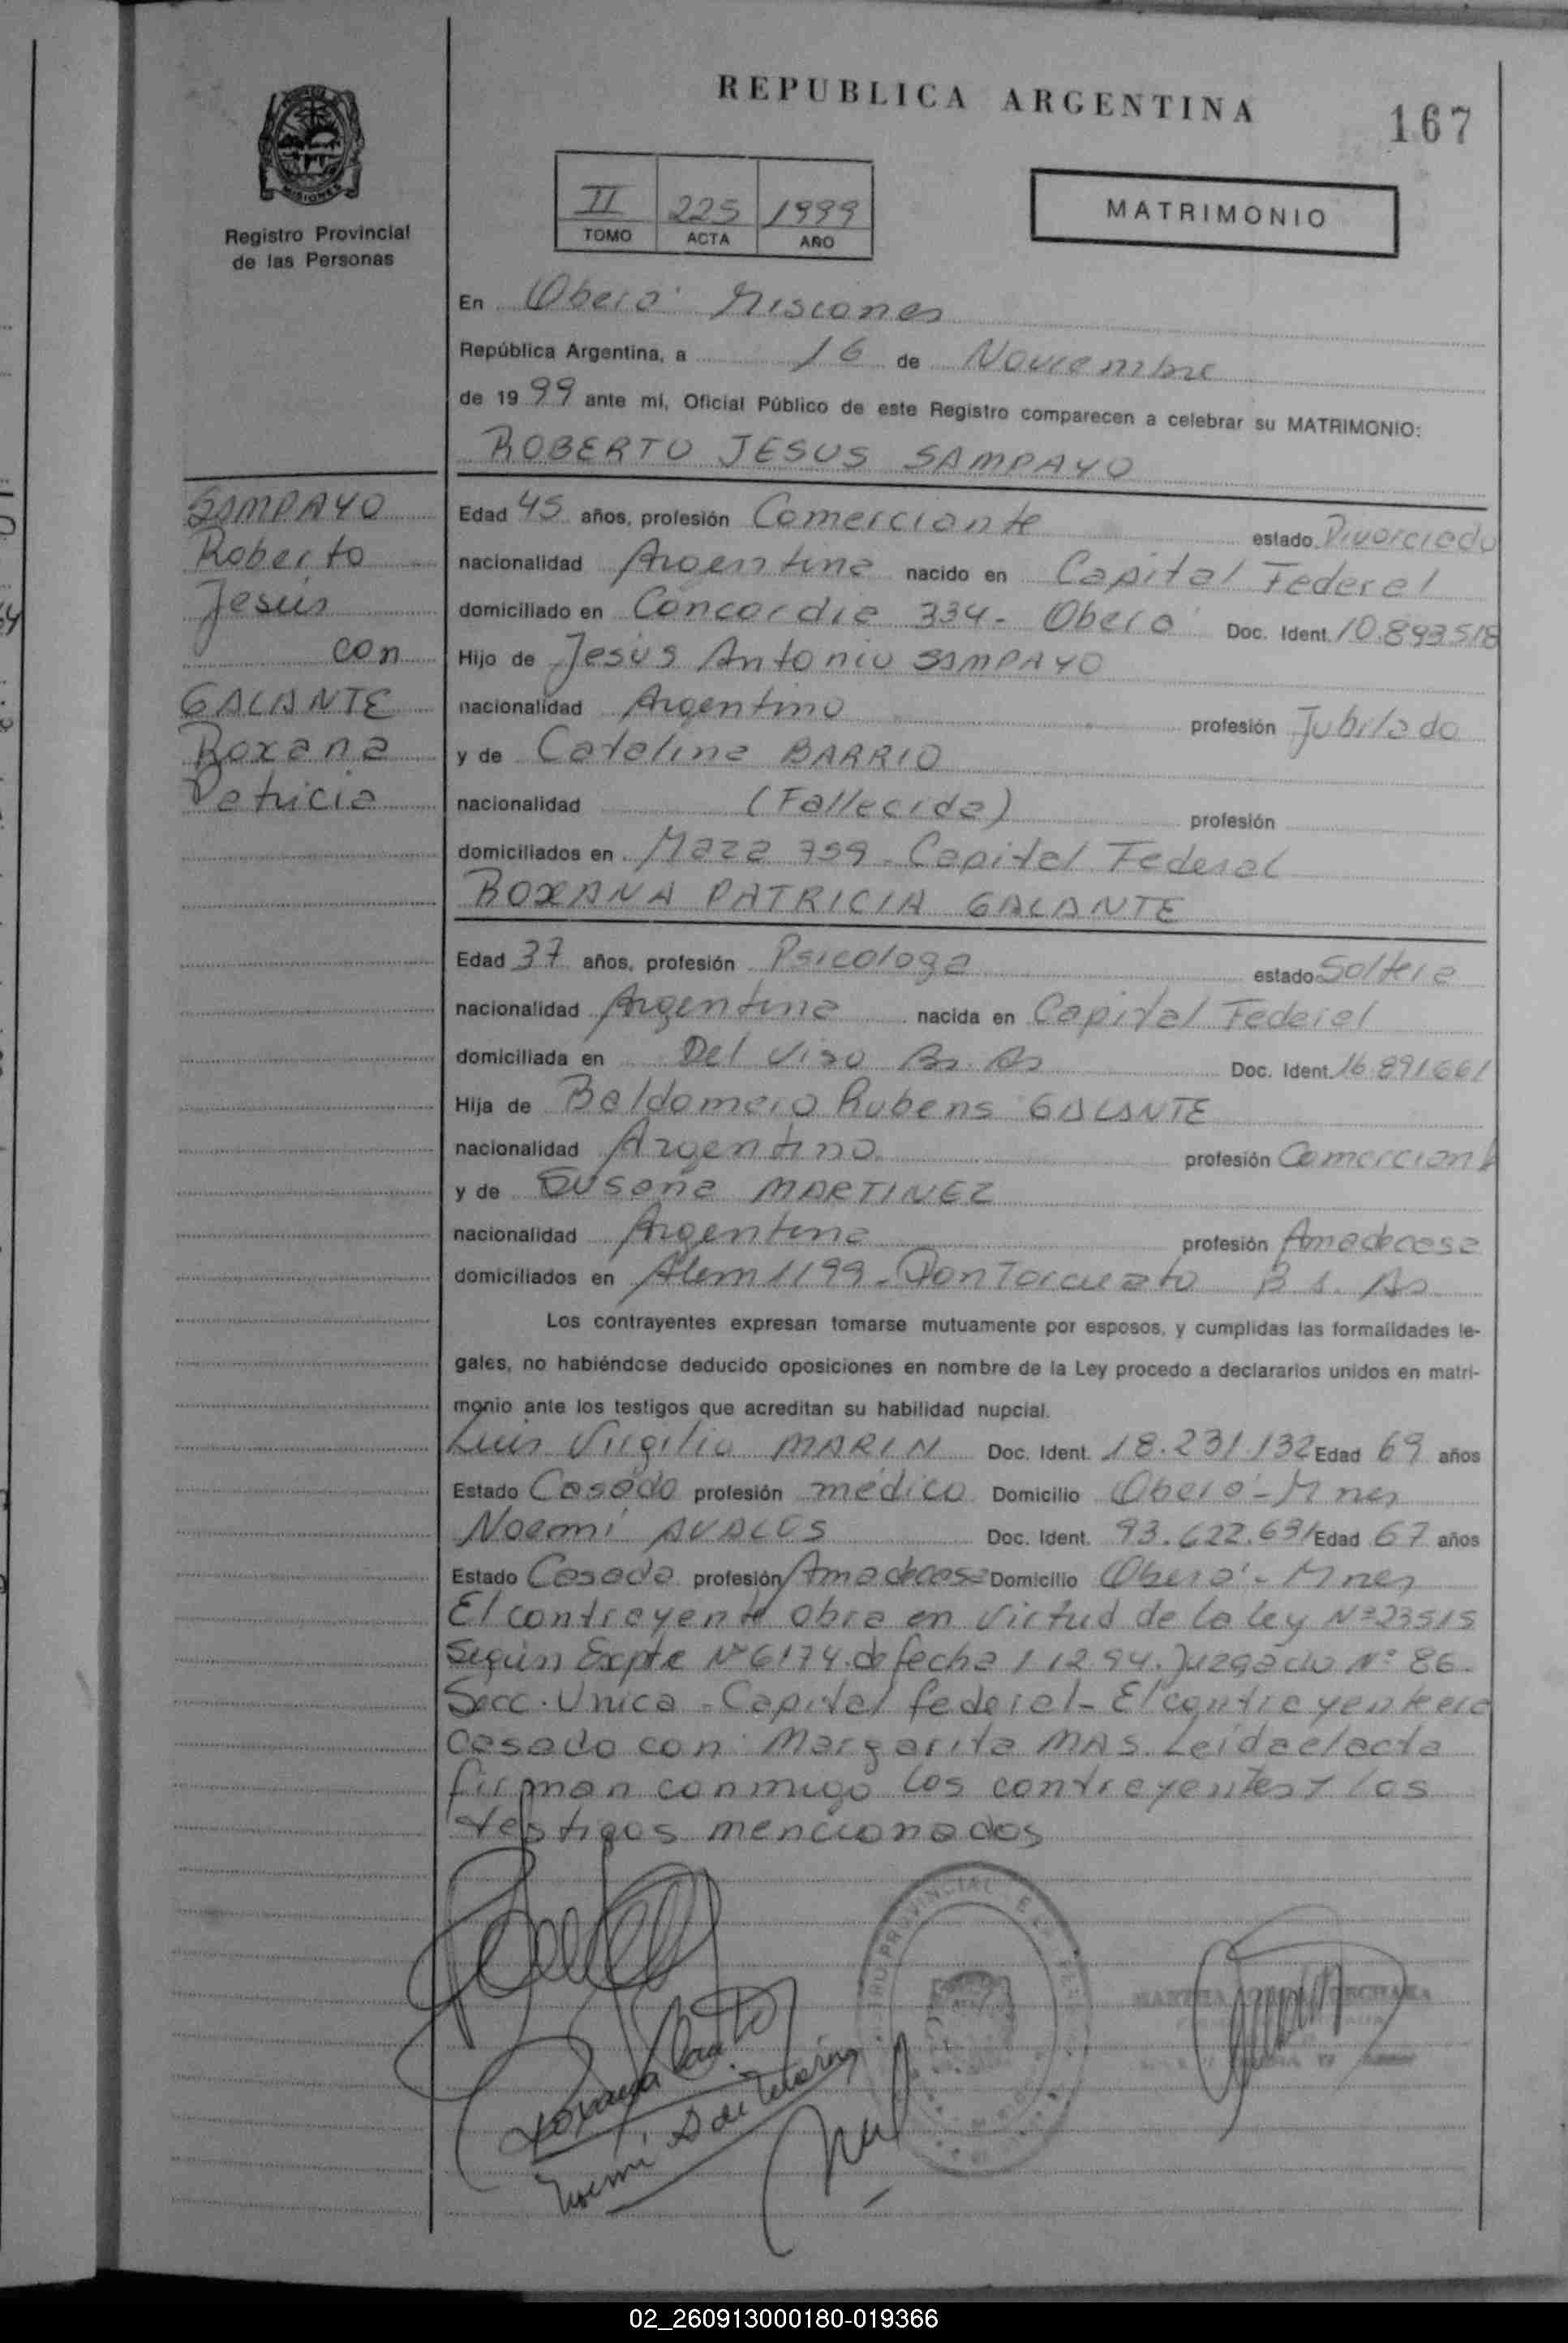 REPUBLICA ARGENTINA
167
MISIONES
Registro Provincial
de las Personas
II 225 1999
TOMO ACTA AÑO
MATRIMONIO
En Oberá Misiones
República Argentina, a 16 de Noviembre
de 1999 ante mí, Oficial Público de este Registro comparecen a celebrar su MATRIMONIO:
ROBERTO JESUS SAMPAYO
SAMPAYO
Roberto
Jesús
con
GALANTE
Roxana
Patricia
Edad 45 años, profesión Comerciante estado Divorciado
nacionalidad Argentina nacido en Capital Federal
domiciliado en Concordia 334- Oberá Doc. Ident. 10.893518
Hijo de Jesús Antonio SAMPAYO
nacionalidad Argentino profesión Jubilado
y de Catalina BARRIO
nacionalidad (Fallecida) profesión
domiciliados en Maza 759- Capital Federal
ROXANA PATRICIA GALANTE
Edad 37 años, profesión Psicologa estado Soltera
nacionalidad Argentina nacida en Capital Federal
domiciliada en Del Viso Bs. As Doc. Ident. 16.891661
Hija de Baldomero Rubens GALANTE
nacionalidad Argentino profesión Comerciante
y de Susana MARTINEZ
nacionalidad Argentina profesión Amadecasa
domiciliados en Alem 1199- Don Torcuato Bs. As
Los contrayentes expresan tomarse mutuamente por esposos, y cumplidas las formalidades le-
gales, no habiéndose deducido oposiciones en nombre de la Ley procedo a declararlos unidos en matri-
monio ante los testigos que acreditan su habilidad nupcial.
Luis Virgilio MARIN Doc. Ident. 18.231.132 Edad 69 años
Estado Casado profesión médico Domicilio Oberá- Mnes
Noemí AVALOS Doc. Ident. 93.622.631 Edad 67 años
Estado Casada profesión Amadecasa Domicilio Oberá- Mnes
El contrayente obra en virtud de la ley Nº23515
Según Expte Nº 6174. de fecha 1 12 94. Juzgado Nº 86.
Secc. Unica - Capital federal- El contrayente era
casado con Margarita MAS. Leida el acta
firman conmigo los contrayentes y los
testigos mencionados
02_260913000180-019366